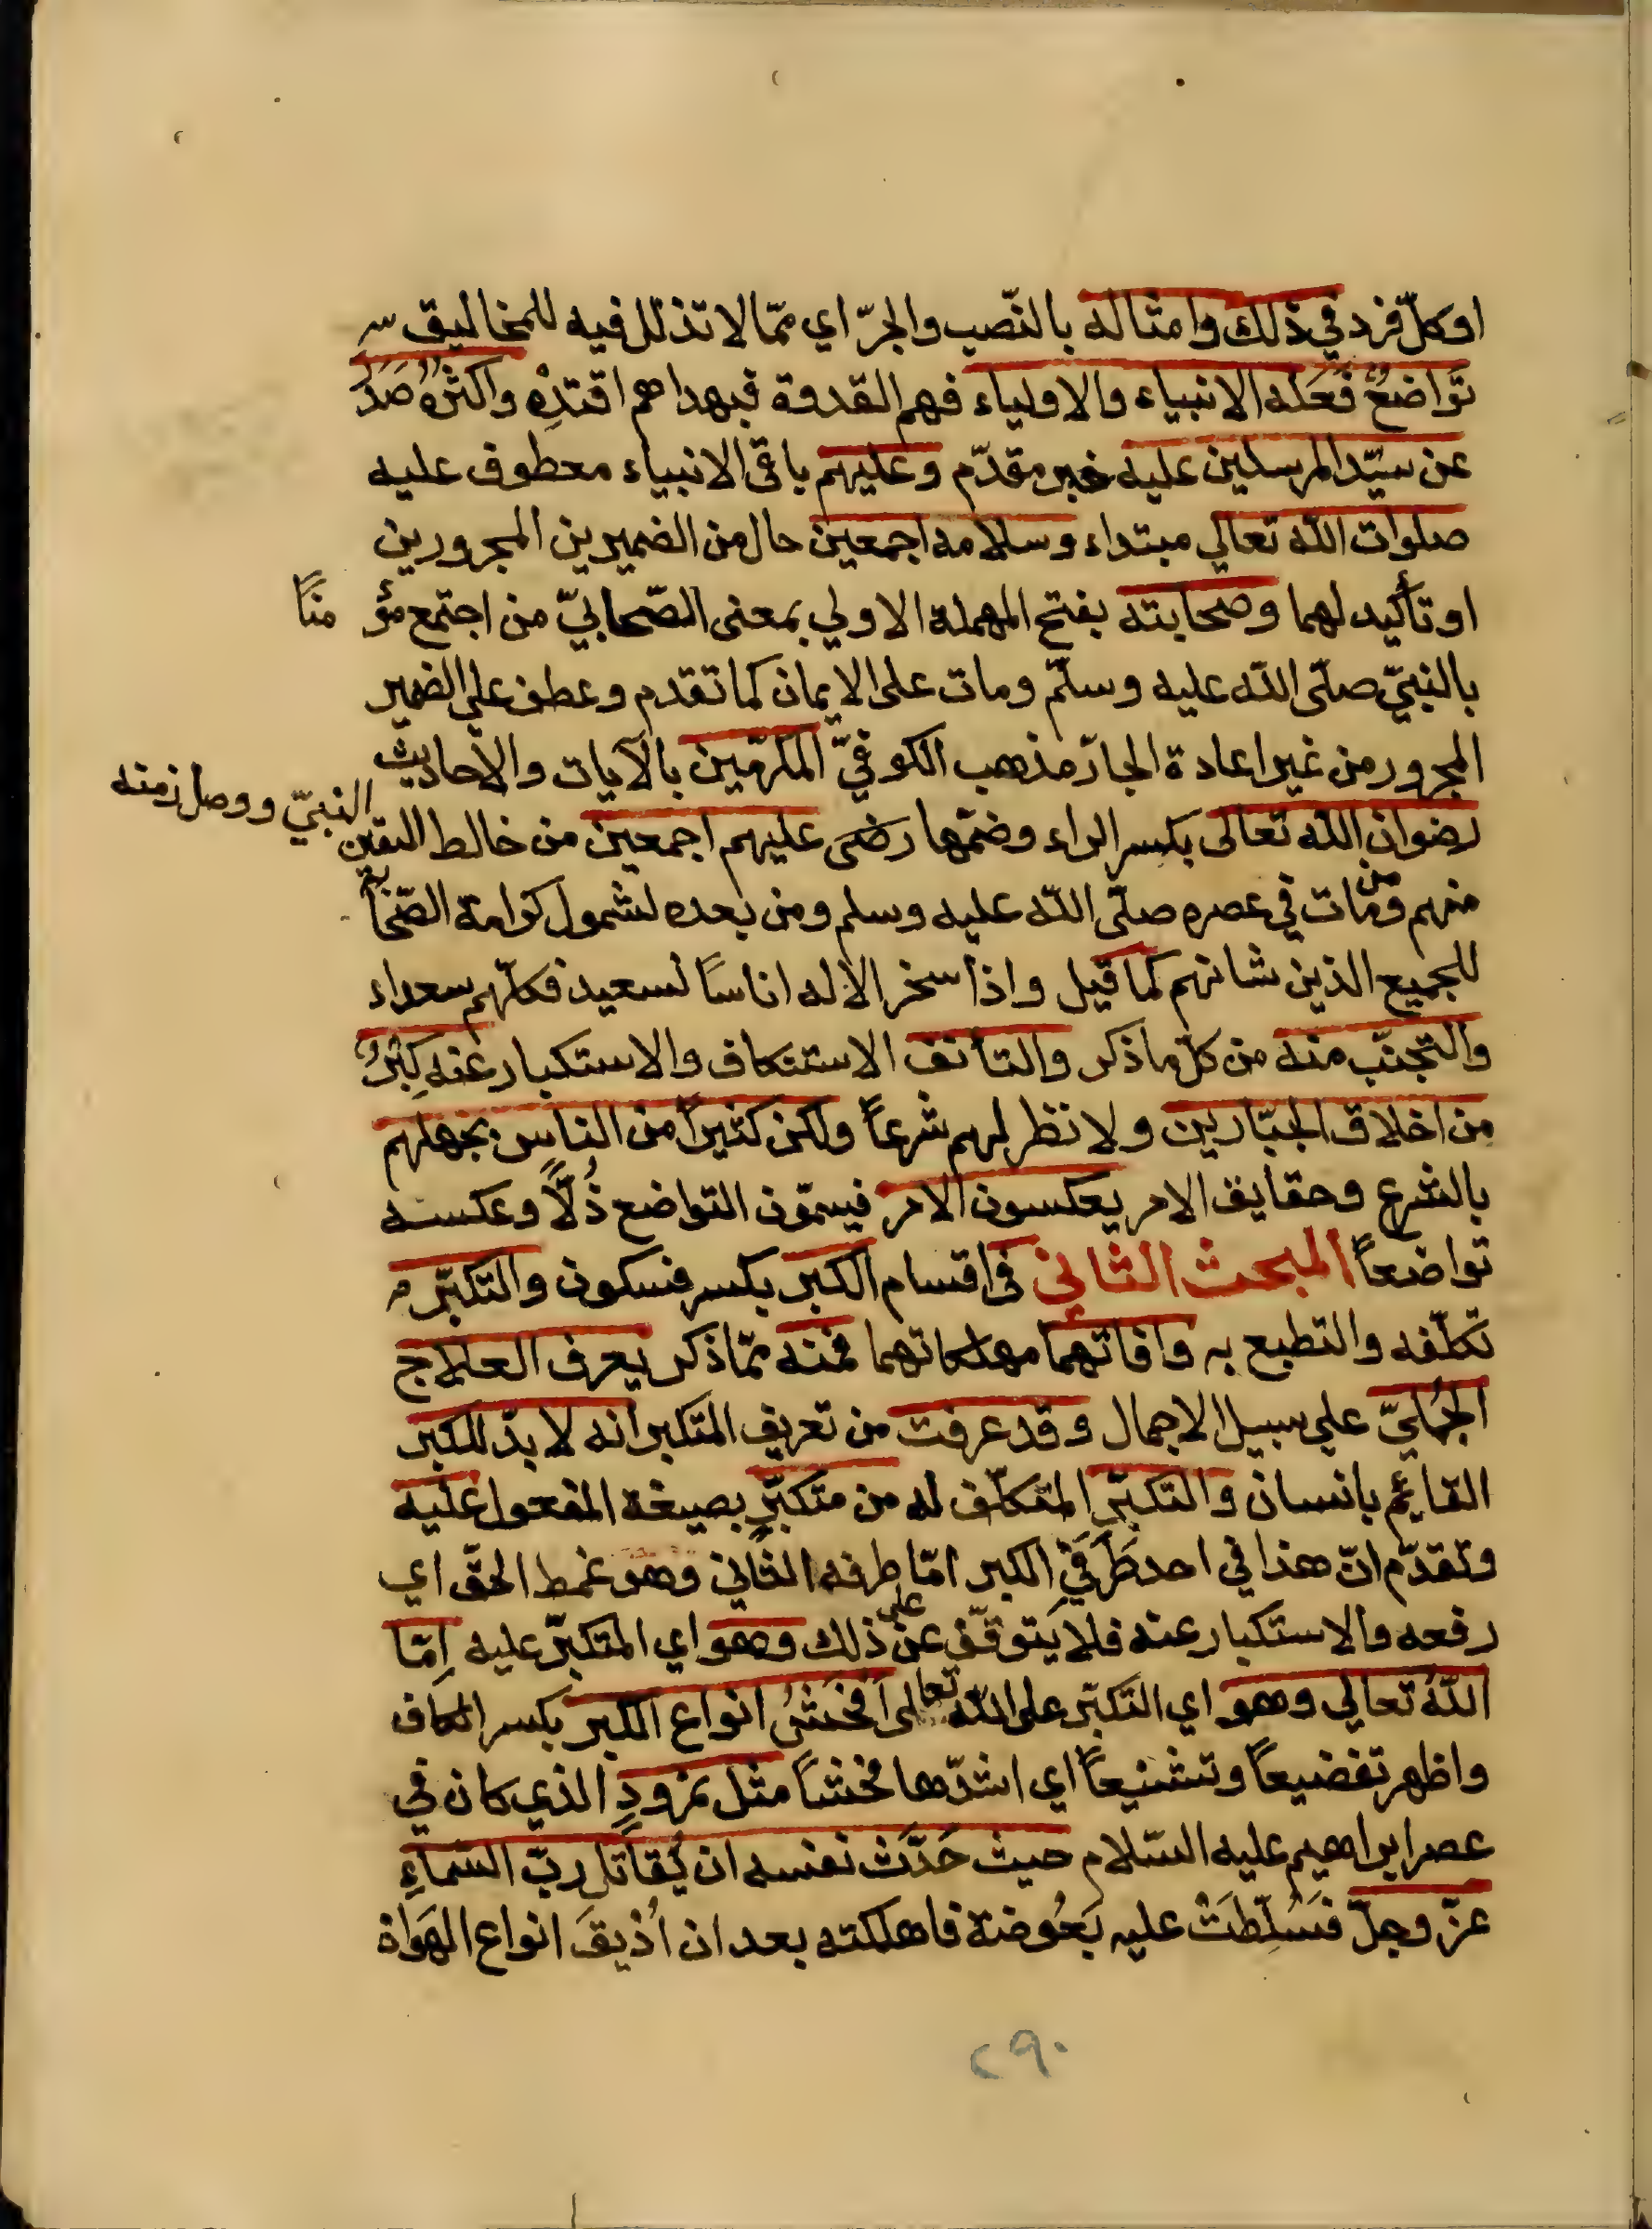 او كلّ فرد في ذلك وامثاله بالنّصب والجرّ اي ممّا لا تذلل فيه للمخاليق
تَوَاضُعٌ فَعَلَه الانبياء والاولياء فهم القدوة فبهداهم اقتدِهْ واكثرُه صَدَرَ
عن سيّد المرسلين عليه خبر مقدّم وعليهم باقي الانبياء معطوف عليه
صلوات الله تعالي مبتداء وسلامه اجمعين حال من الضميرين المجرورين
او تأكيد لهما وصحابته بفتح المهملة الاولي بمعنى الصّحابيّ من اجتمع مؤ منًا
بالنبيّ صلّى الله عليه وسلّم ومات على الايمان كما تقدم وعطف علي الضمير
المجرور من غير اعادة الجارّ مذهب الكوفيّ المكرّمين بالآيات والاحاديث
رضوان الله تعالى بكسر الراء وضمّها رضى عليهم اجمعين من خالط الفتن
النبيّ ووصل زمنه
منهم ومن مات في عصره صلّى الله عليه وسلم ومن بعده لشمول كرامة الصّحابة
للجميع الذين شانهم كما قيل واذا سخر الاله اناسًا لسعيد فكلّهم سعداء
والتّجنّب منه من كلّ ما ذكر والتأنف الاستنكاف والاستكبار عنه كِبْرٌ
من اخلاق الجبّارين ولا نظر لهم شرعاً ولكن كثيراً من الناس بجهلهم
بالشرع وحقايق الامر يعكسون الامر فيسمّون التواضع ذُلّاً وعكسه
تواضعاً المبحث الثاني في اقسام الكبر بكسر فسكون والتكبّر
تكلّفه والتطبع به وافاتهما مهلكاتهما فمنه ممّا ذكر يعرف العلاج
الجُمليّ علي سبيل الاجمال وقد عرفت من تعريف المتكبر انه لا بدّ للكبر
القائم بانسان والتكبّر المتكلّف له من متكبَّرٍ بصيغة المفعول عليه
وتقدّم انّ هذا في احد طَرَفَيِ الكبر امّا طرفه الثاني وهو غمط الحقّ اي
رفعه والاستكبار عنه فلا يتوقّف عن على ذلك وهو اي المتكبّر عليه اِمّا
اللهُ تعالي وهو اي التكبّر على الله تعالى اَفحَشُ انواع الكبر بكسر الكاف
واظهر تفضيعاً وتشنيعاً اي اشدّها فحشاً مثل نمرودٍ الذي كان في
عصر ابراهيم عليه السّلام حيث حَدَّثَ نفسه ان يُقاتل ربّ السّماءِ
عزّ وجلّ فَسُلِّطَتْ عليه بَعُوضة فاهلكته بعد ان اُذيقَ انواع الهَوَان
٢٩٠